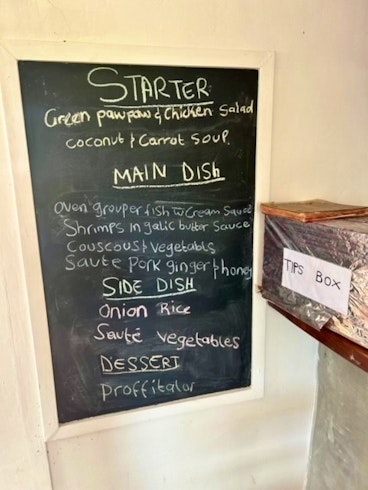 STARTER
Green pawpaw & Chicken Salad
coconut & Carrot SOUP.
MAIN DISh
Oven grouper fish w Cream Sauce
Shrimps in galic butter Sauce
Couscous & vegetabls
Saute Pork ginger & honey
SIDE DISH
Onion Rice
Sauté vegetables
DESSERT
proffitalor
TIPS BOX